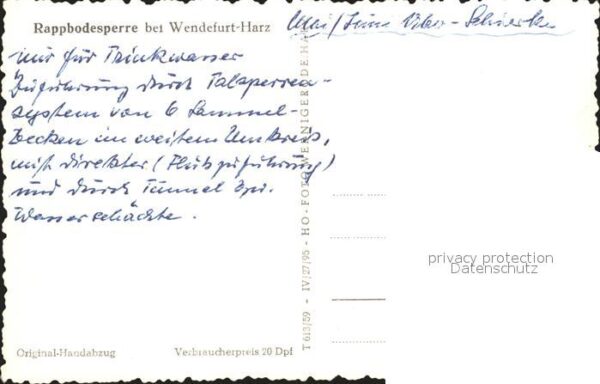 Rappbodesperre bei Wendefurt-Harz
Mai/Juni
nur für Trinkwasser
Zuführung durch Talsperren-
system von 6 Sammel-
becken im weitem Umkreis,
mit direkter (Flußzuführung)
und durch Tunnel
Wasserschächte.
T 613/59 - IV/27/95 - HO-FOTO WERNIGERODE HARZ
privacy protection
Datenschutz
Original-Handabzug
Verbraucherpreis 20 Dpf